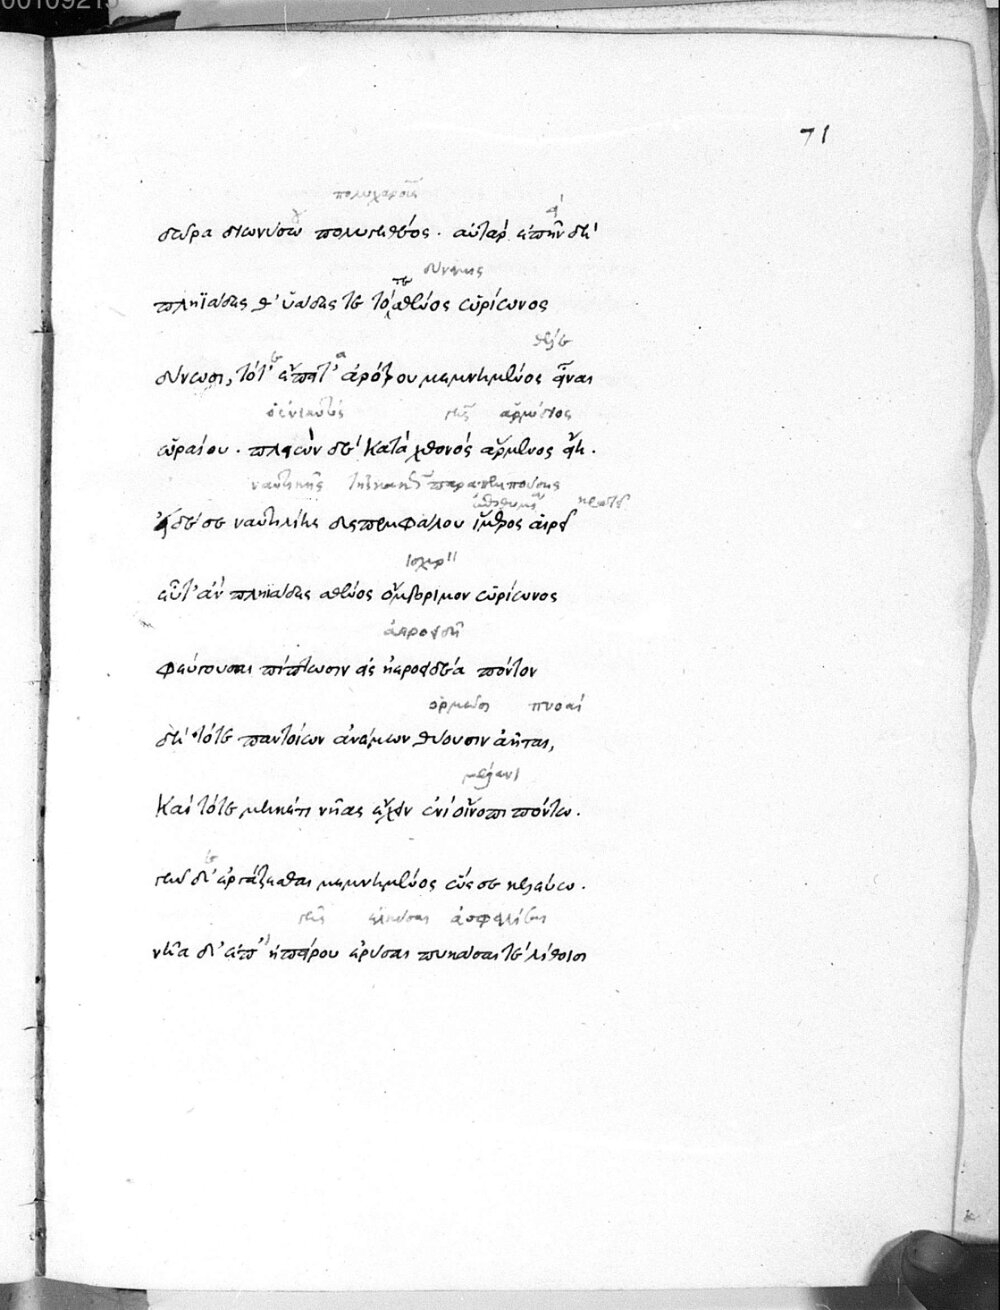 00109215
71
πολυχαροῦς
δῶρα διωνύσου πολυγηθέος· αὐτὰρ ἐπὴν δὴ
δύναμις
πληϊάδες θ' ὑάδες τε τό τε σθένος ὠρίωνος
δύνωσι, τότ' ἔπειτ' ἀρότρου μεμνημένος εἶναι
ὁ ἐνιαυτός γῆς ἁρμόδιος
ὡραίου· πλειὼν δὲ κατὰ χθονὸς ἄρμενος εἴη.
ναυτικῆς
εἰ δέ σε ναυτιλίης δυσπεμφέλου ἵμερος αἱρεῖ
εὖτ' ἂν πληϊάδες σθένος ὄμβριμον ὠρίωνος
φεύγουσαι πίπτωσιν ἐς ἠεροειδέα πόντον
ὁρμῶσι πνοαί
δὴ τότε παντοίων ἀνέμων θύουσιν ἀῆται,
μέλανι
καὶ τότε μηκέτι νῆας ἔχειν ἐνὶ οἴνοπι πόντω.
γῆν δ' ἐργάζεσθαι μεμνημένος ὥς σε κελεύω.
γῆς ἑλκύσαι ἀσφαλίσαι
νῆα δ' ἐπ' ἠπείρου ἐρύσαι πυκάσαι τε λίθοισι